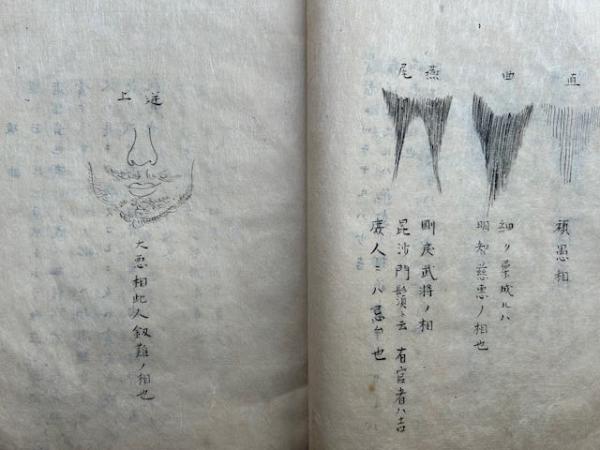 直
頑愚相
曲
細ク柔成ルハ
明智慈恵ノ相也
燕尾
武将ノ相
毘沙門鬚ト云 有官者ハ吉
庶人ニハ忌ム也
逆上
大悪相此人釼難ノ相也